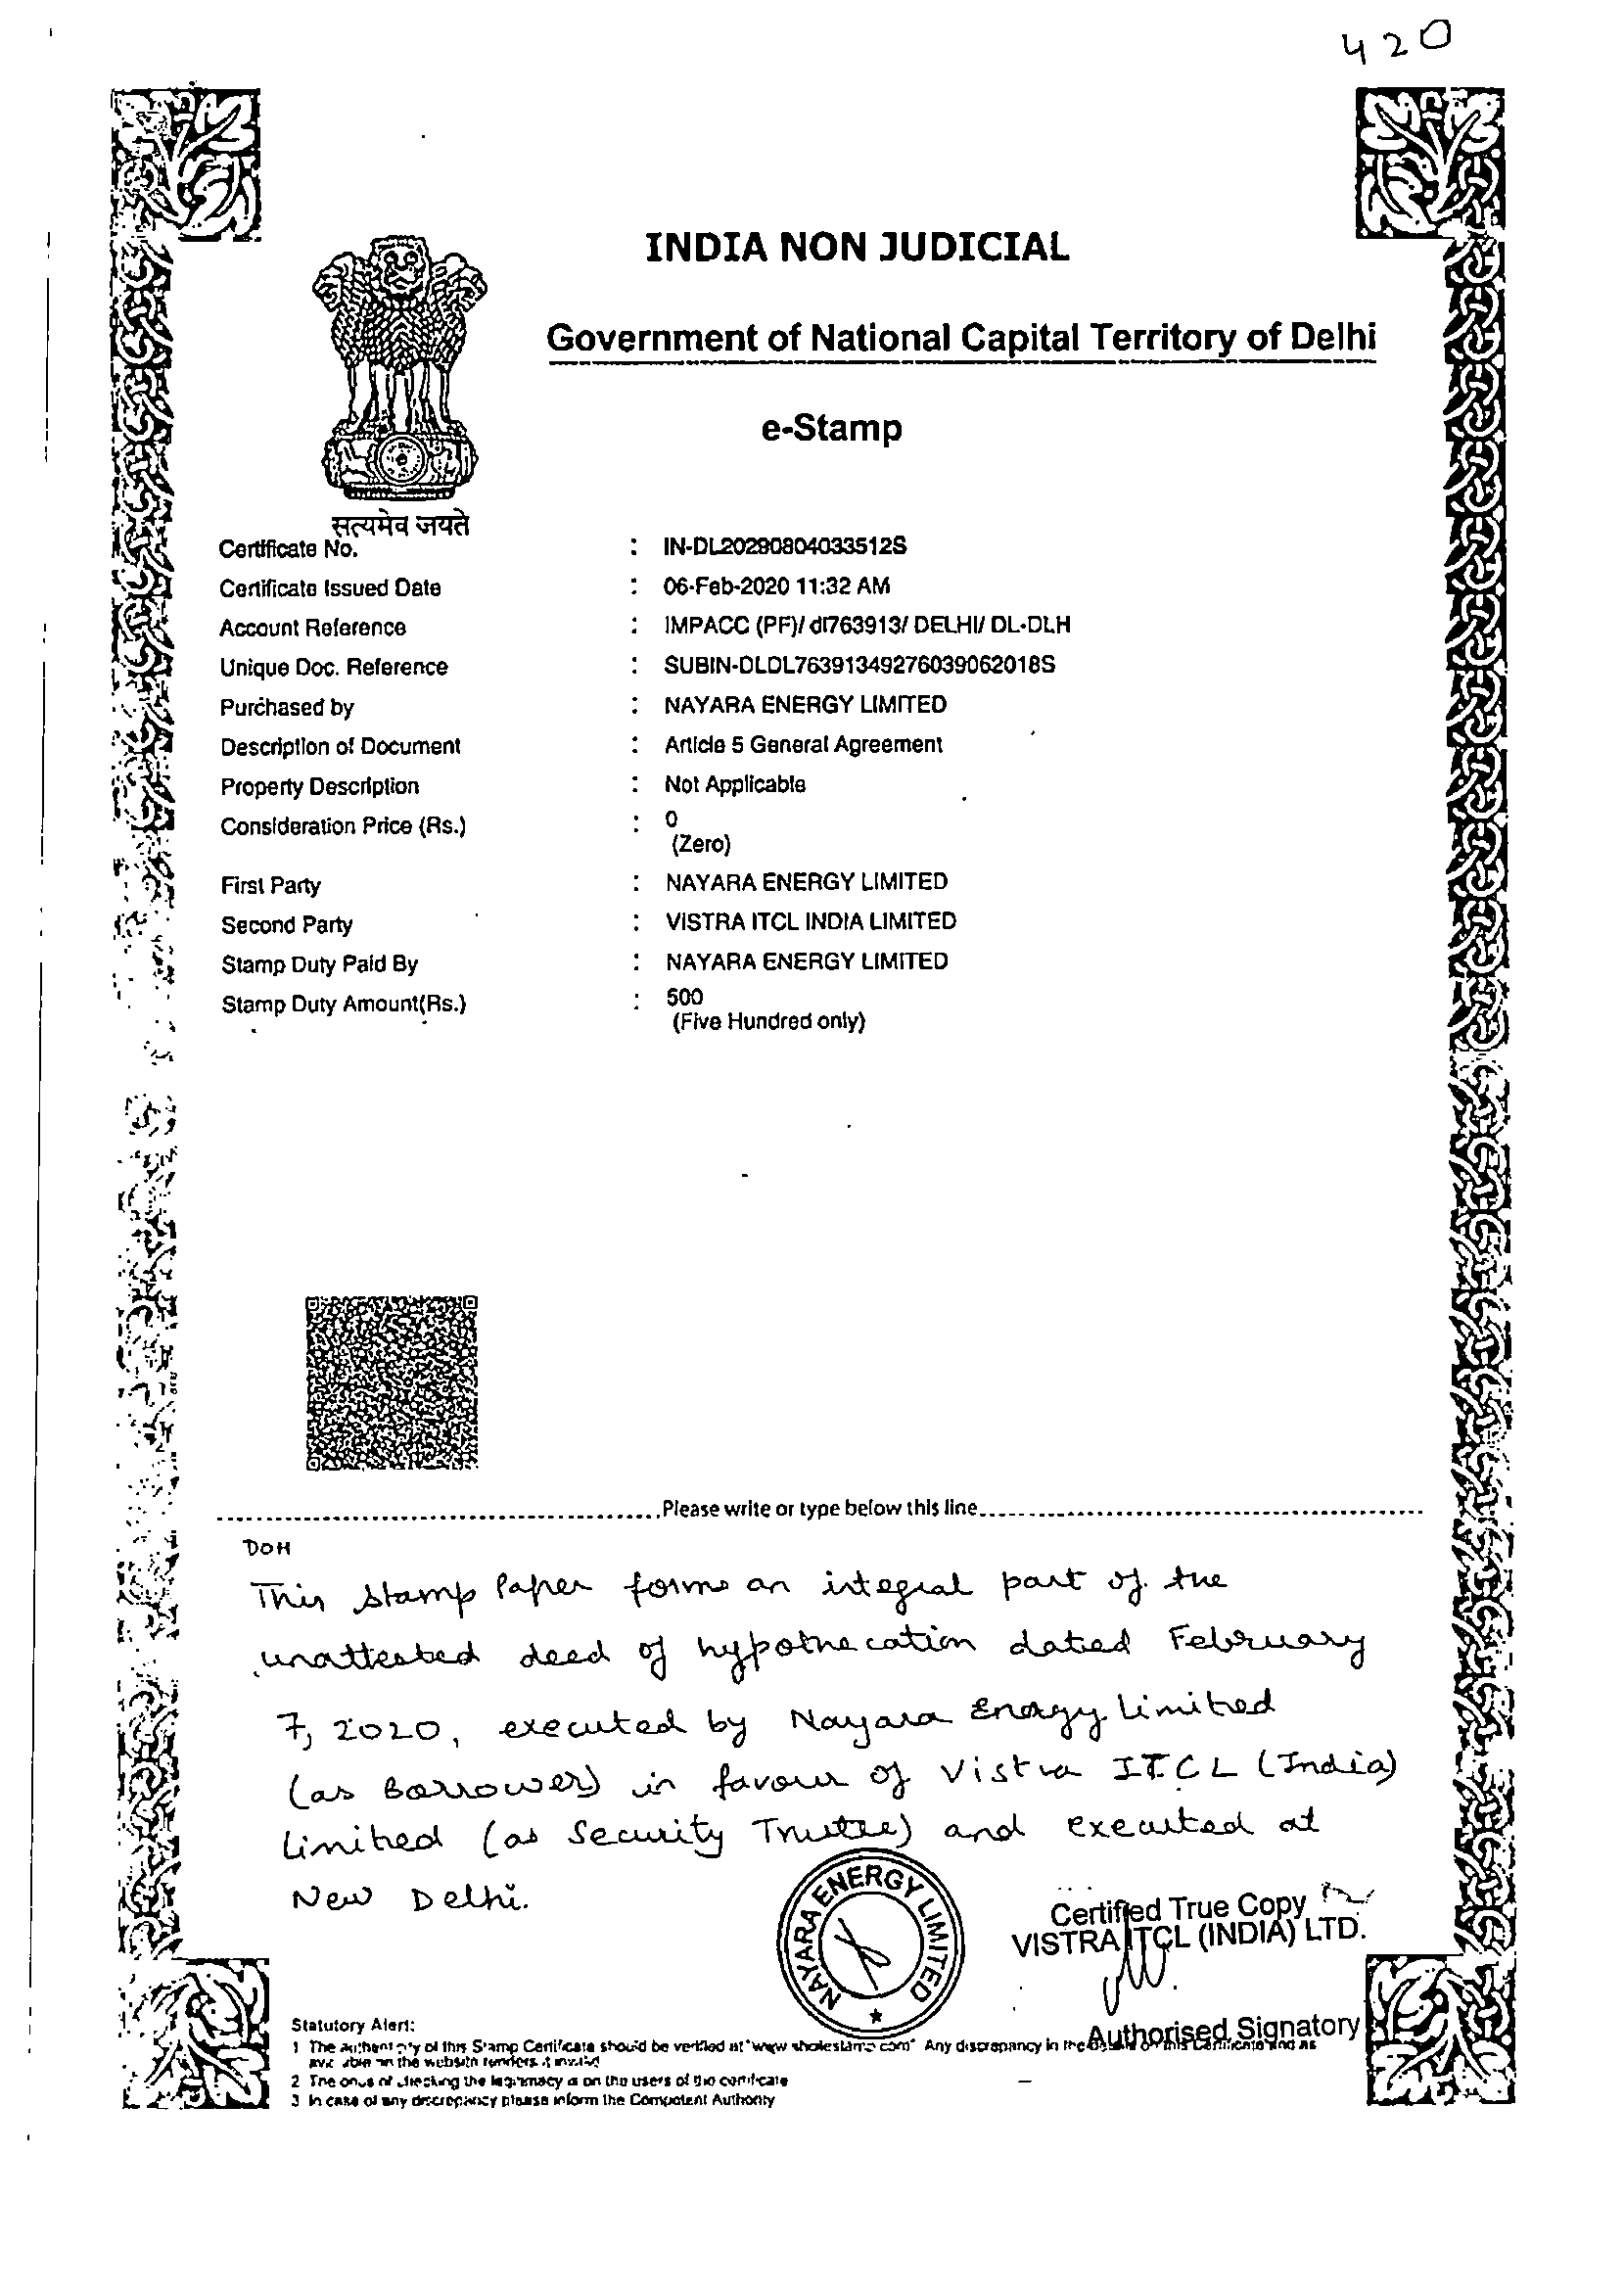 420
INDIA NON JUDICIAL
Government of National Capital Territory of Delhi
e-Stamp
सत्यमेव जयते
Certificate No. : IN-DL20290804033512S
Certificate Issued Date : 06-Feb-2020 11:32 AM
Account Reference : IMPACC (PF)/ dl763913/ DELHI/ DL-DLH
Unique Doc. Reference : SUBIN-DLDL76391349276039062018S
Purchased by : NAYARA ENERGY LIMITED
Description of Document : Article 5 General Agreement
Property Description : Not Applicable
Consideration Price (Rs.) : 0
(Zero)
First Party : NAYARA ENERGY LIMITED
Second Party : VISTRA ITCL INDIA LIMITED
Stamp Duty Paid By : NAYARA ENERGY LIMITED
Stamp Duty Amount(Rs.) : 500
(Five Hundred only)
Please write or type below this line
DOH
This Stamp Paper forms an integral part of the
unattested deed of hypothecation dated February
7, 2020, executed by Nayara Energy Limited
(as Borrower) in favour of Vistra ITCL (India)
Limited (as Security Trustee) and executed at
New Delhi.
NAYARA ENERGY LIMITED
Certified True Copy
VISTRA ITCL (INDIA) LTD.
Authorised Signatory
Statutory Alert:
1 The authenticity of this Stamp Certificate should be verified at "www shcilestamp com" Any discrepancy in the details on this Certificate and as
available on the website renders it invalid
2 The onus of checking the legitimacy is on the users of the certificate
3 In case of any discrepancy please inform the Competent Authority